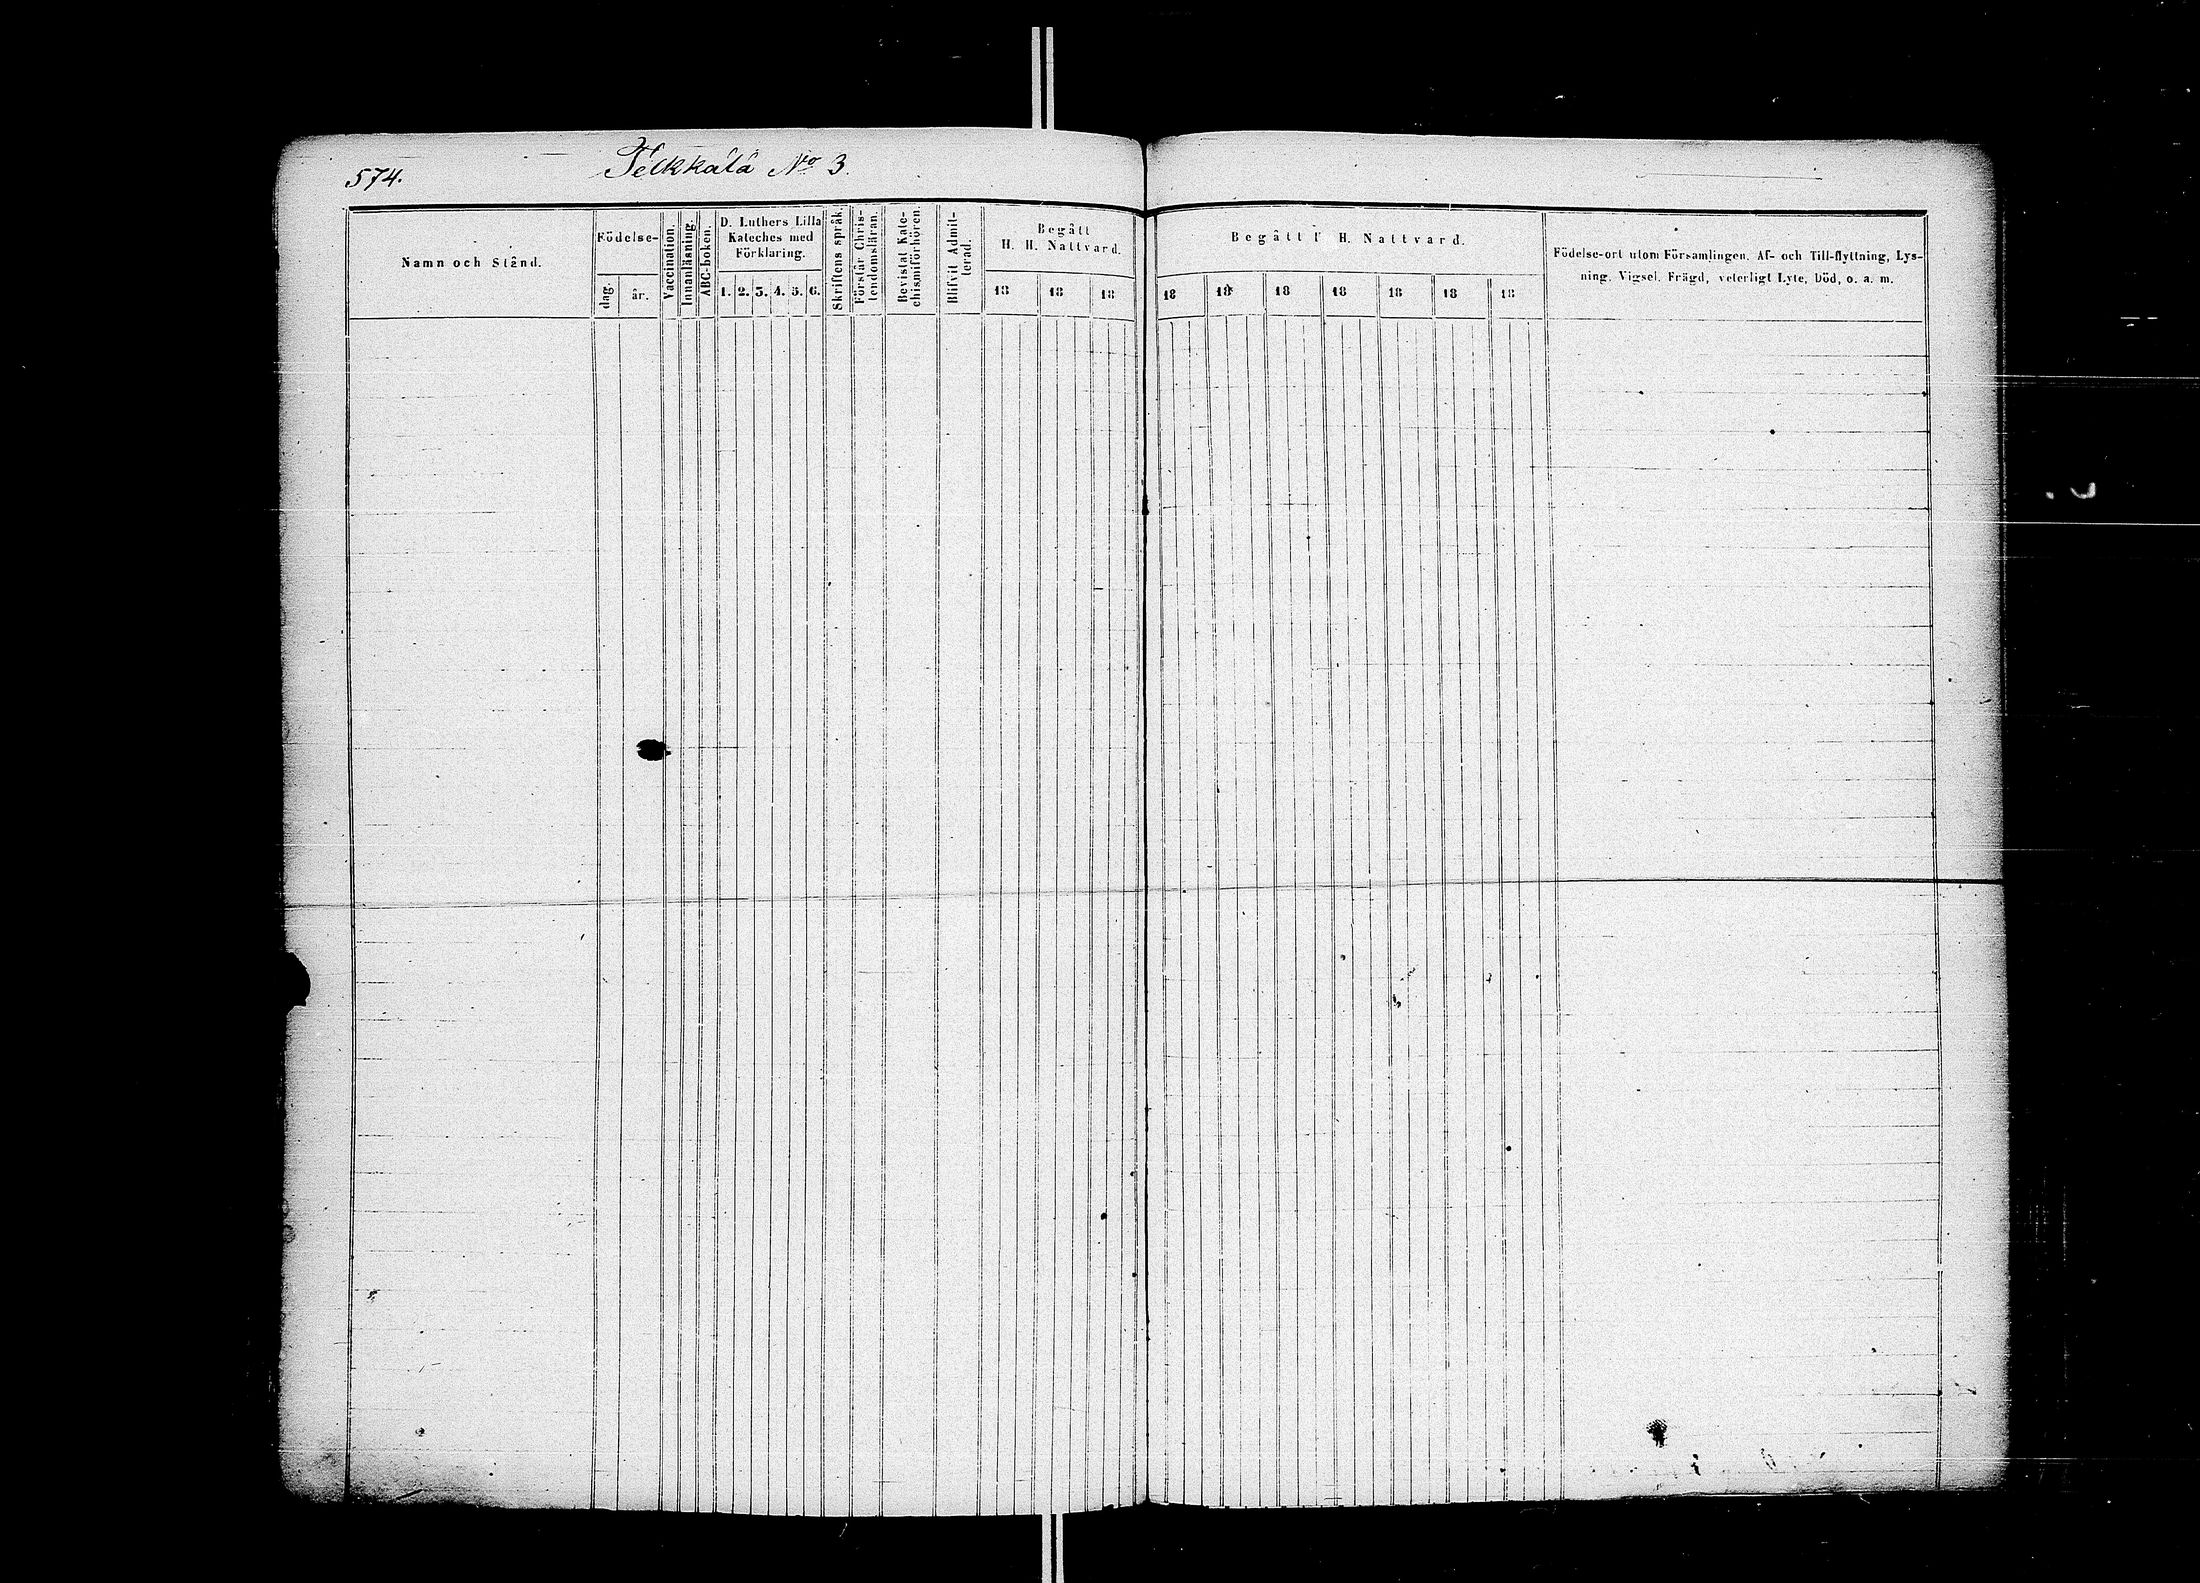 574.
Pelkkälä No 3.
Namn och Stånd.
Födelse-
dag.
år.
Vaccination.
Innanläsning.
ABC-boken.
D. Luthers Lilla
Kateches med
Förklaring.
1. 2. 3. 4. 5. 6.
Skriftens språk.
Förstår Chris-
tendomsläran.
Bevistat Kate-
chismiförhören.
Blifvit Admit-
terad.
Begått
H. H. Nattvard.
18 18 18
Begått H. H. Nattvard.
18 18 18 18 18 18 18
Födelse-ort utom Församlingen. Af- och Till-flyttning, Lys-
ning. Vigsel. Frägd, veterligt Lyte, Död, o. a. m.